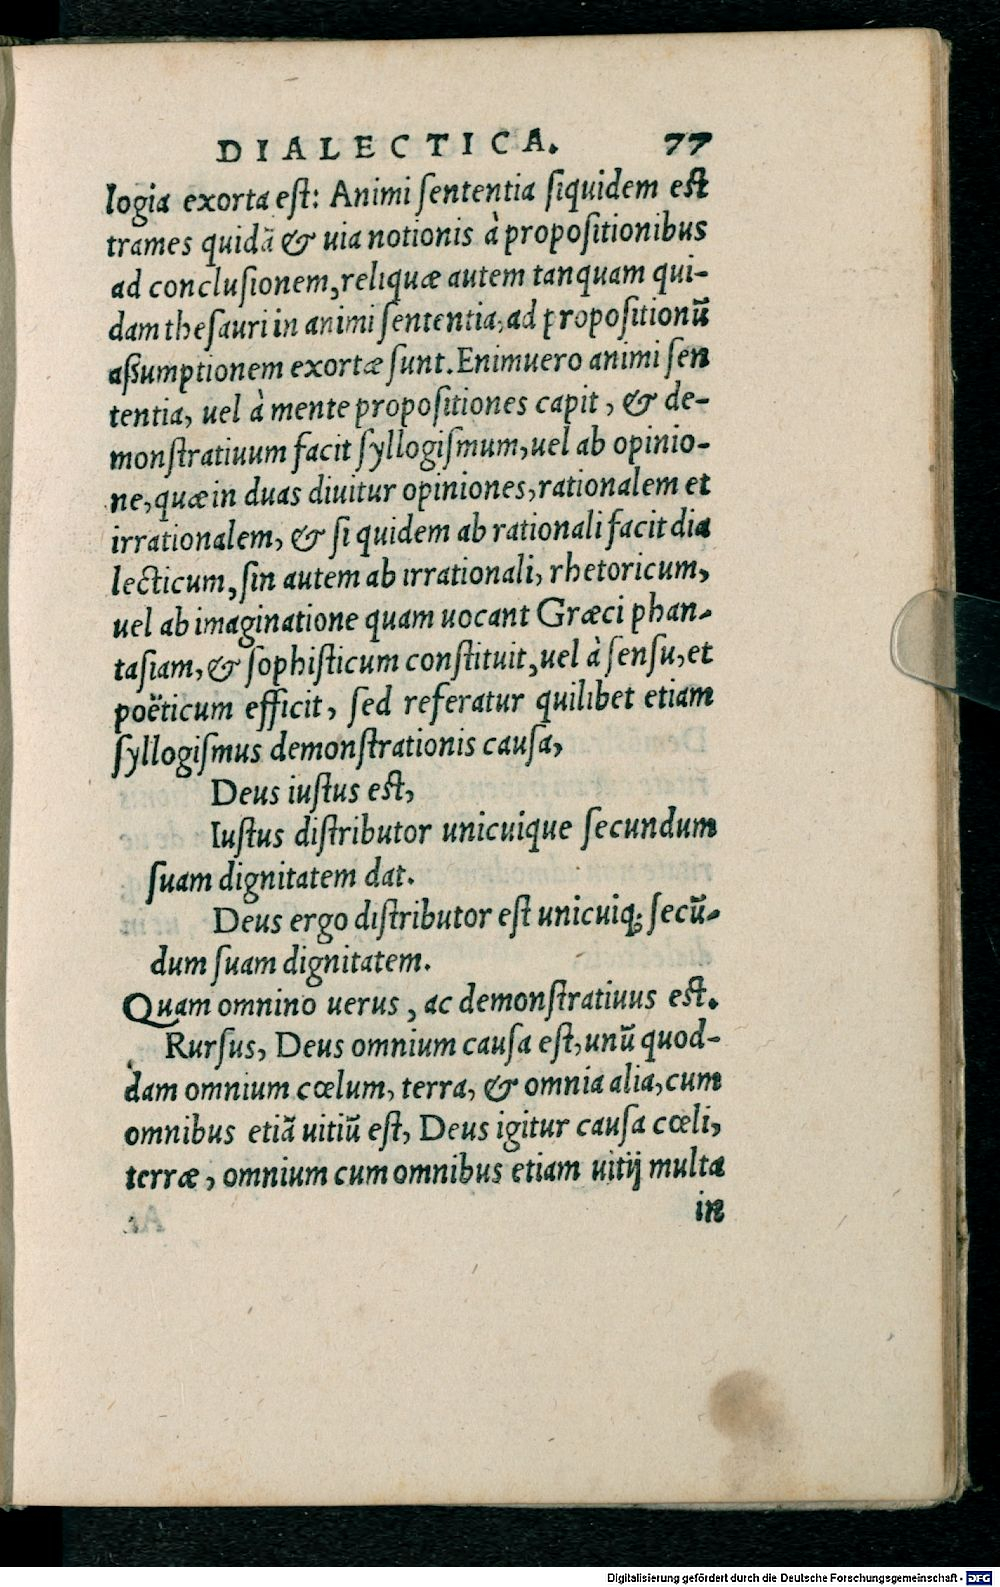 DIALECTICA. 77
logia exorta est: Animi sententia siquidem est
trames quidã & uia notionis à propositionibus
ad conclusionem, reliquæ autem tanquam qui-
dam thesauri in animi sententia, ad propositionũ
aßumptionem exortæ sunt. Enimuero animi sen
tentia, uel à mente propositiones capit, & de-
monstratiuum facit syllogismum, uel ab opinio-
ne, quæ in duas diuitur opiniones, rationalem et
irrationalem, & si quidem ab rationali facit dia
lecticum, sin autem ab irrationali, rhetoricum,
uel ab imaginatione quam uocant Græci phan-
tasiam, & sophisticum constituit, uel à sensu, et
poëticum efficit, sed referatur quilibet etiam
syllogismus demonstrationis causa,
Deus iustus est,
Iustus distributor unicuique secundum
suam dignitatem dat.
Deus ergo distributor est unicuiq; secũ-
dum suam dignitatem.
Quam omnino uerus, ac demonstratiuus est.
Rursus, Deus omnium causa est, unũ quod-
dam omnium cœlum, terra, & omnia alia, cum
omnibus etiã uitiũ est, Deus igitur causa cœli,
terræ, omnium cum omnibus etiam uitij multa
in
Digitalisierung gefördert durch die Deutsche Forschungsgemeinschaft - DFG